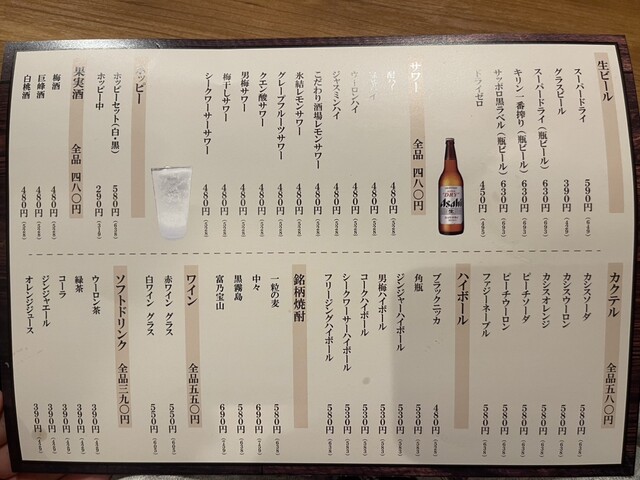 生ビール
スーパードライ 590円
グラスビール 390円
スーパードライ(瓶ビール) 630円
キリン一番搾り(瓶ビール) 630円
サッポロ黒ラベル(瓶ビール) 630円
ドライゼロ 450円
Asahi
サワー 全品 四八〇円
480円
480円
ウーロンハイ 480円
ジャスミンハイ 480円
こだわり酒場レモンサワー 480円
氷結レモンサワー 480円
グレープフルーツサワー 480円
クエン酸サワー 480円
男梅サワー 480円
梅干しサワー 480円
シークワーサーサワー 480円
ホッピー
ホッピーセット(白・黒) 580円
ホッピー中 290円
果実酒 全品 四八〇円
梅酒 480円
巨峰酒 480円
白桃酒 480円
カクテル 全品五八〇円
カシスソーダ 580円
カシスウーロン 580円
カシスオレンジ 580円
ピーチソーダ 580円
ピーチウーロン 580円
ファジーネーブル 580円
ハイボール
ブラックニッカ 480円
角瓶 530円
ジンジャーハイボール 530円
男梅ハイボール 530円
コークハイボール 530円
シークワーサーハイボール 530円
フリージングハイボール 580円
銘柄焼酎
一粒の麦 580円
中々 690円
黒霧島 580円
富乃宝山 690円
ワイン 全品五五〇円
赤ワイン グラス 550円
白ワイン グラス 550円
ソフトドリンク 全品三九〇円
ウーロン茶 390円
緑茶 390円
コーラ 390円
ジンジャエール 390円
オレンジジュース 390円